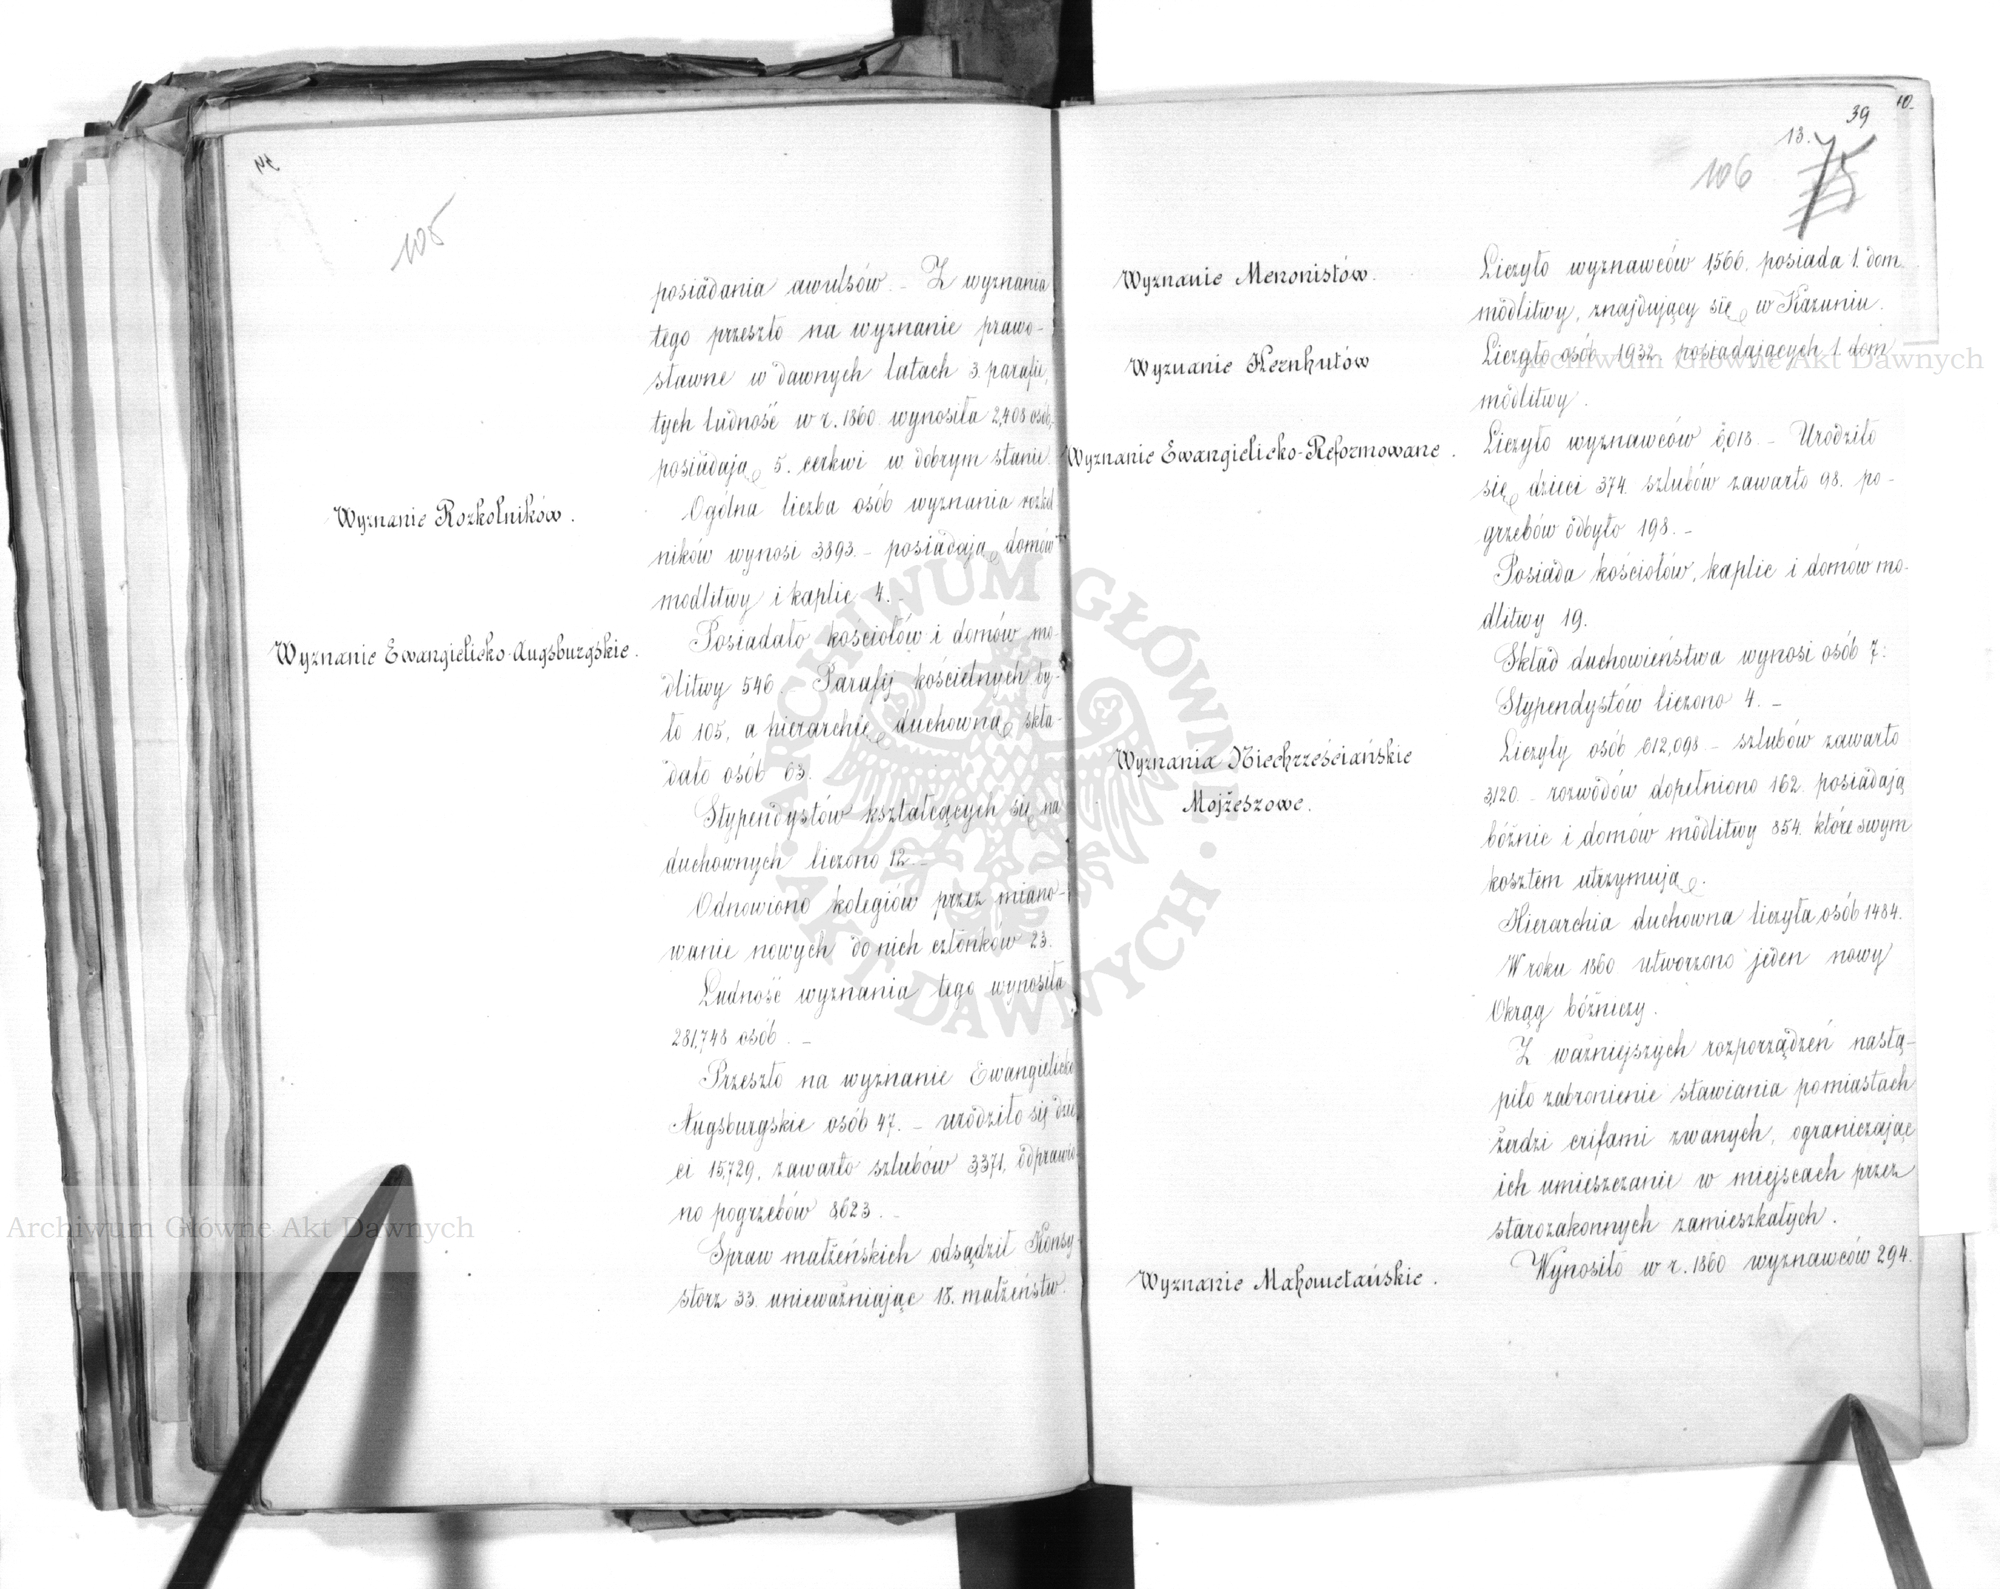 105
posiadania awulsów. – Z wyznania
tego przeszło na wyznanie prawo-
sławne w dawnych latach 3. parafie,
tych ludność w r. 1860 wynosiła 2,408 osób,
posiadają 5. cerkwi w dobrym stanie.
Wyznanie Rozkolników.
Ogólna liczba osób wyznania rozkol
ników wynosi 3,893. – posiadają domów
modlitwy i kaplic 4. –
Wyznanie Ewangielicko-Augsburgskie.
Posiadało kościołów i domów mo-
dlitwy 546. Parafij kościelnych by-
ło 105, a hierarchię duchowną skła-
dało osób 63. –
Stypendystów kształcących się na
duchownych liczono 12. –
Odnowiono kolegiów przez miano-
wanie nowych do nich członków 23.
Ludność wyznania tego wynosiła
281,748 osób. –
Przeszło na wyznanie Ewangielicko
Augsburgskie osób 47. – urodziło się dzie
ci 15,729, zawarło szlubów 3,371, odprawio
no pogrzebów 8,623. –
Spraw małżeńskich odsądził Konsy-
storz 33. unieważniając 18. małżeństw.
10.
39
13.
106
75
Wyznanie Menonistów.
Liczyło wyznawców 1,566. posiada 1. dom
modlitwy, znajdujący się w Kazuniu.
Wyznanie Hernhutów
Liczyło osób 1932 posiadających 1. dom
modlitwy.
Wyznanie Ewangielicko-Reformowane.
Liczyło wyznawców 6,018. – Urodziło
się dzieci 374. szlubów zawarło 98. po-
grzebów odbyło 198. –
Posiada kościołów, kaplic i domów mo-
dlitwy 19.
Skład duchowieństwa wynosi osób 7:
Stypendystów liczono 4. –
Wyznania Niechrześciańskie
Mojżeszowe.
Liczyły osób 612,098 – szlubów zawarło
3,120. – rozwodów dopełniono 162. posiadają
bóżnic i domów modlitwy 854. które swym
kosztem utrzymują.
Hierarchia duchowna liczyła osób 1484.
W roku 1860 utworzono jeden nowy
Okrąg bóżniczy.
Z ważniejszych rozporządzeń nastą-
piło zabronienie stawiania po miastach
żerdzi erifami zwanych, ograniczając
ich umieszczanie w miejscach przez
starozakonnych zamieszkałych.
Wyznanie Mahometańskie.
Wynosiło w r. 1860 wyznawców 294.
Archiwum Główne Akt Dawnych
Archiwum Główne Akt Dawnych
ARCHIWUM GŁÓWNE · AKT DAWNYCH ·